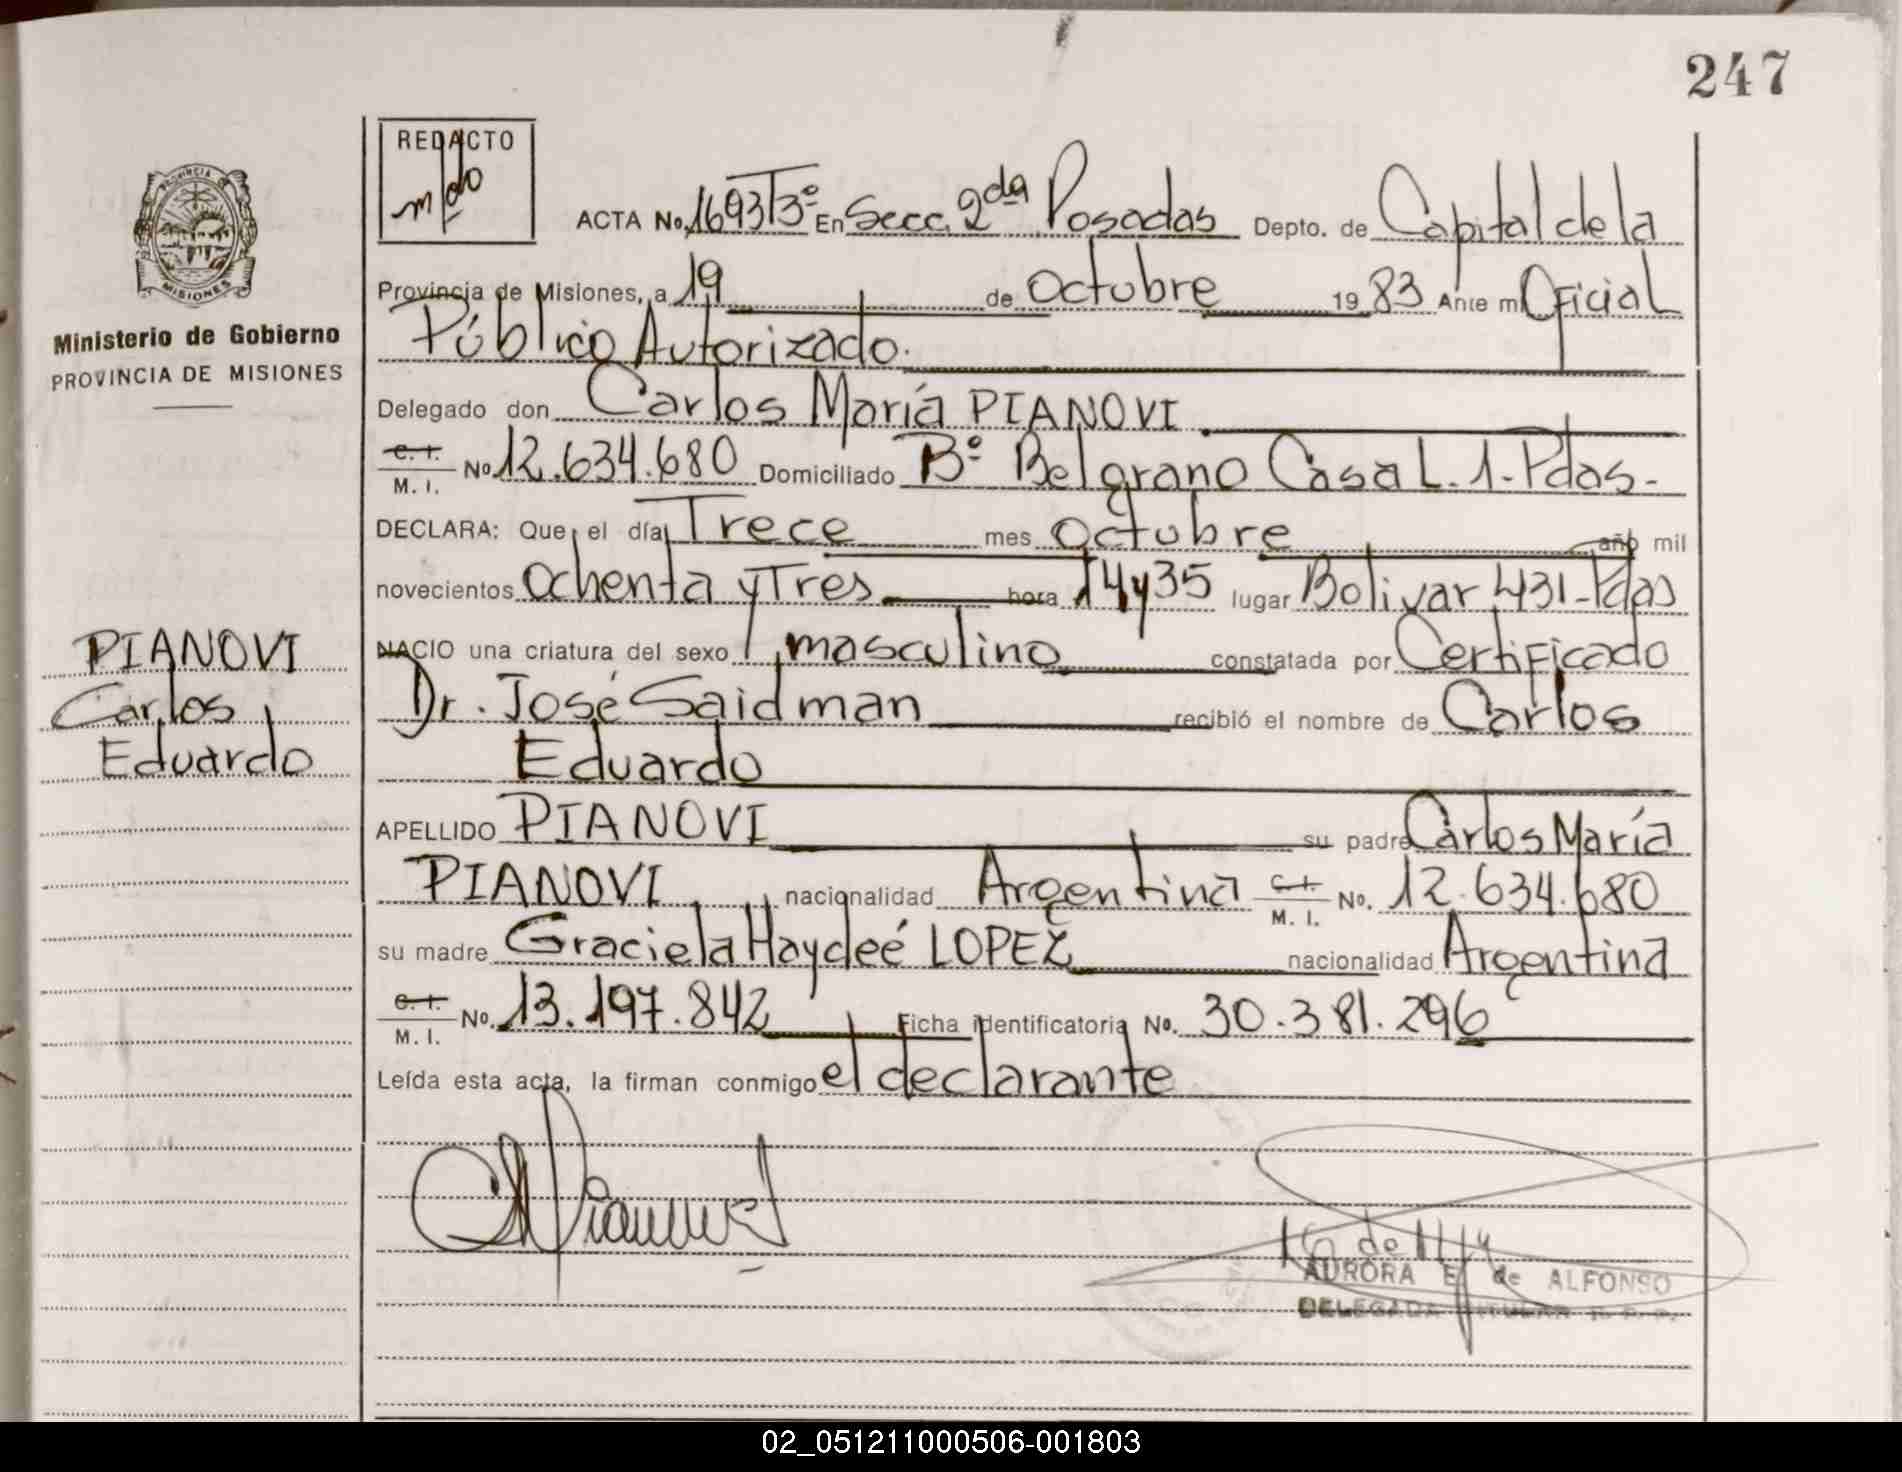 247
REDACTO
ACTA No. 1693 T3º En Secc. 2da Posadas Depto. de Capital de la
PROVINCIA
MISIONES
Provincia de Misiones, a 19 de octubre 1983 Ante mi Oficial
Ministerio de Gobierno
Público Autorizado.
PROVINCIA DE MISIONES
Delegado don Carlos María PIANOVI
C. I.
M. I. No. 12.634.680 Domiciliado Bº Belgrano Casa L. 1. Pdas.
DECLARA: Que, el día Trece mes octubre año mil
novecientos ochenta y Tres hora 14y35 lugar Bolivar 431-Pdas
PIANOVI
NACIO una criatura del sexo masculino constatada por Certificado
Carlos
Dr. José Saidman recibió el nombre de Carlos
Eduardo
Eduardo
APELLIDO PIANOVI su padre Carlos María
PIANOVI nacionalidad Argentina C. I. M. I. No. 12.634.680
su madre Graciela Haydeé LOPEZ nacionalidad Argentina
C. I.
M. I. No. 13.197.842 Ficha identificatoria No. 30.381.296
Leída esta acta, la firman conmigo el declarante
AURORA E. de ALFONSO
DELEGADA TITULAR R. P. P.
02_051211000506-001803